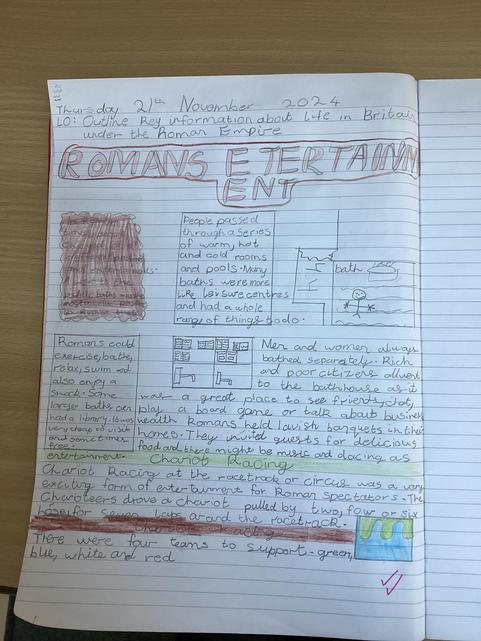 Thursday 21st November 2024
LO: Outline key information about life in Britain
under the Roman Empire
ROMANS ETERTAINM
ENT
People passed
through a series
of warm, hot
and cold rooms
and pools. Many
baths were more
like leisure centres
and had a whole
range of things to do.
bath
Romans could
exercise, bathe,
relax, swim and
also enjoy a
snack. Some
larger baths even
had a library. It was
very cheap to visit
and sometimes
free.
Men and women always
bathed separately. Rich
and poor citizens all went
to the bathhouse as it
was a great place to see friends, chat,
play a board game or talk about business
wealth Romans held lavish banquets in their
homes. They invited guests for delicious
food and there might be music and dacing as
entertainment.
Chariot Racing
Chariot Racing at the racetrack or circus was a very
exciting form of entertainment for Roman Spectators. The
Charioteers drove a chariot pulled by two, four or six
for seven laps around the racetrack.
There were four teams to support - green,
blue, white and red